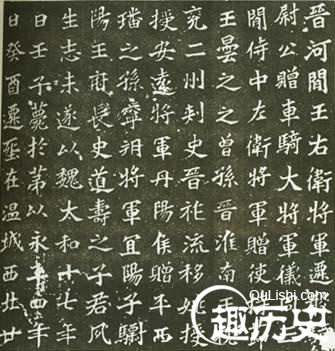 晉河間王右衛將軍遷
尉公贈車騎大將軍儀
閒侍中左衛將軍贈使
王曇之之曾孫晉淮南王
兗二州刺史晉祚流移姚授
授安遠將軍丹陽侯贈平西
璠之孫寧朔將軍宜陽子
陽王府長史道壽之子君夙
生志未遂以魏太和十七年
日壬子薨於第以永平四年
日癸酉遷塋在温城西北廿
QuLishi.com
趣历史